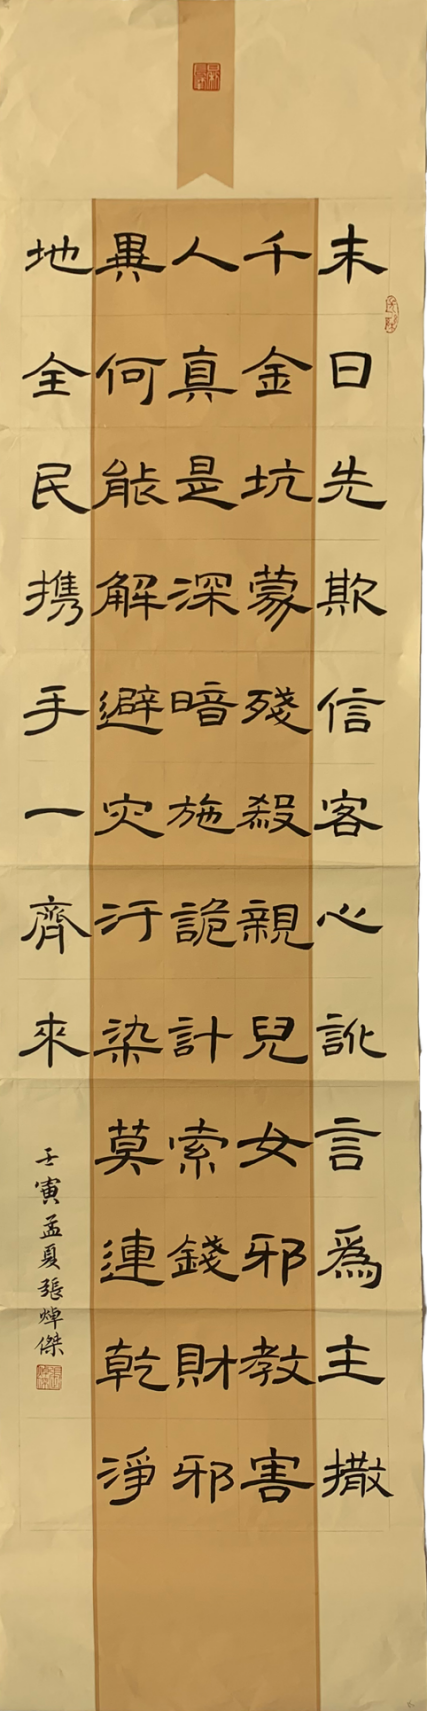 末日先欺信客心訛言爲主撒
千金坑蒙殘殺親兒女邪教害
人真是深暗施詭計索錢財邪
異何能解避灾汙染莫連乾淨
地全民携手一齊來
壬寅孟夏張焯傑